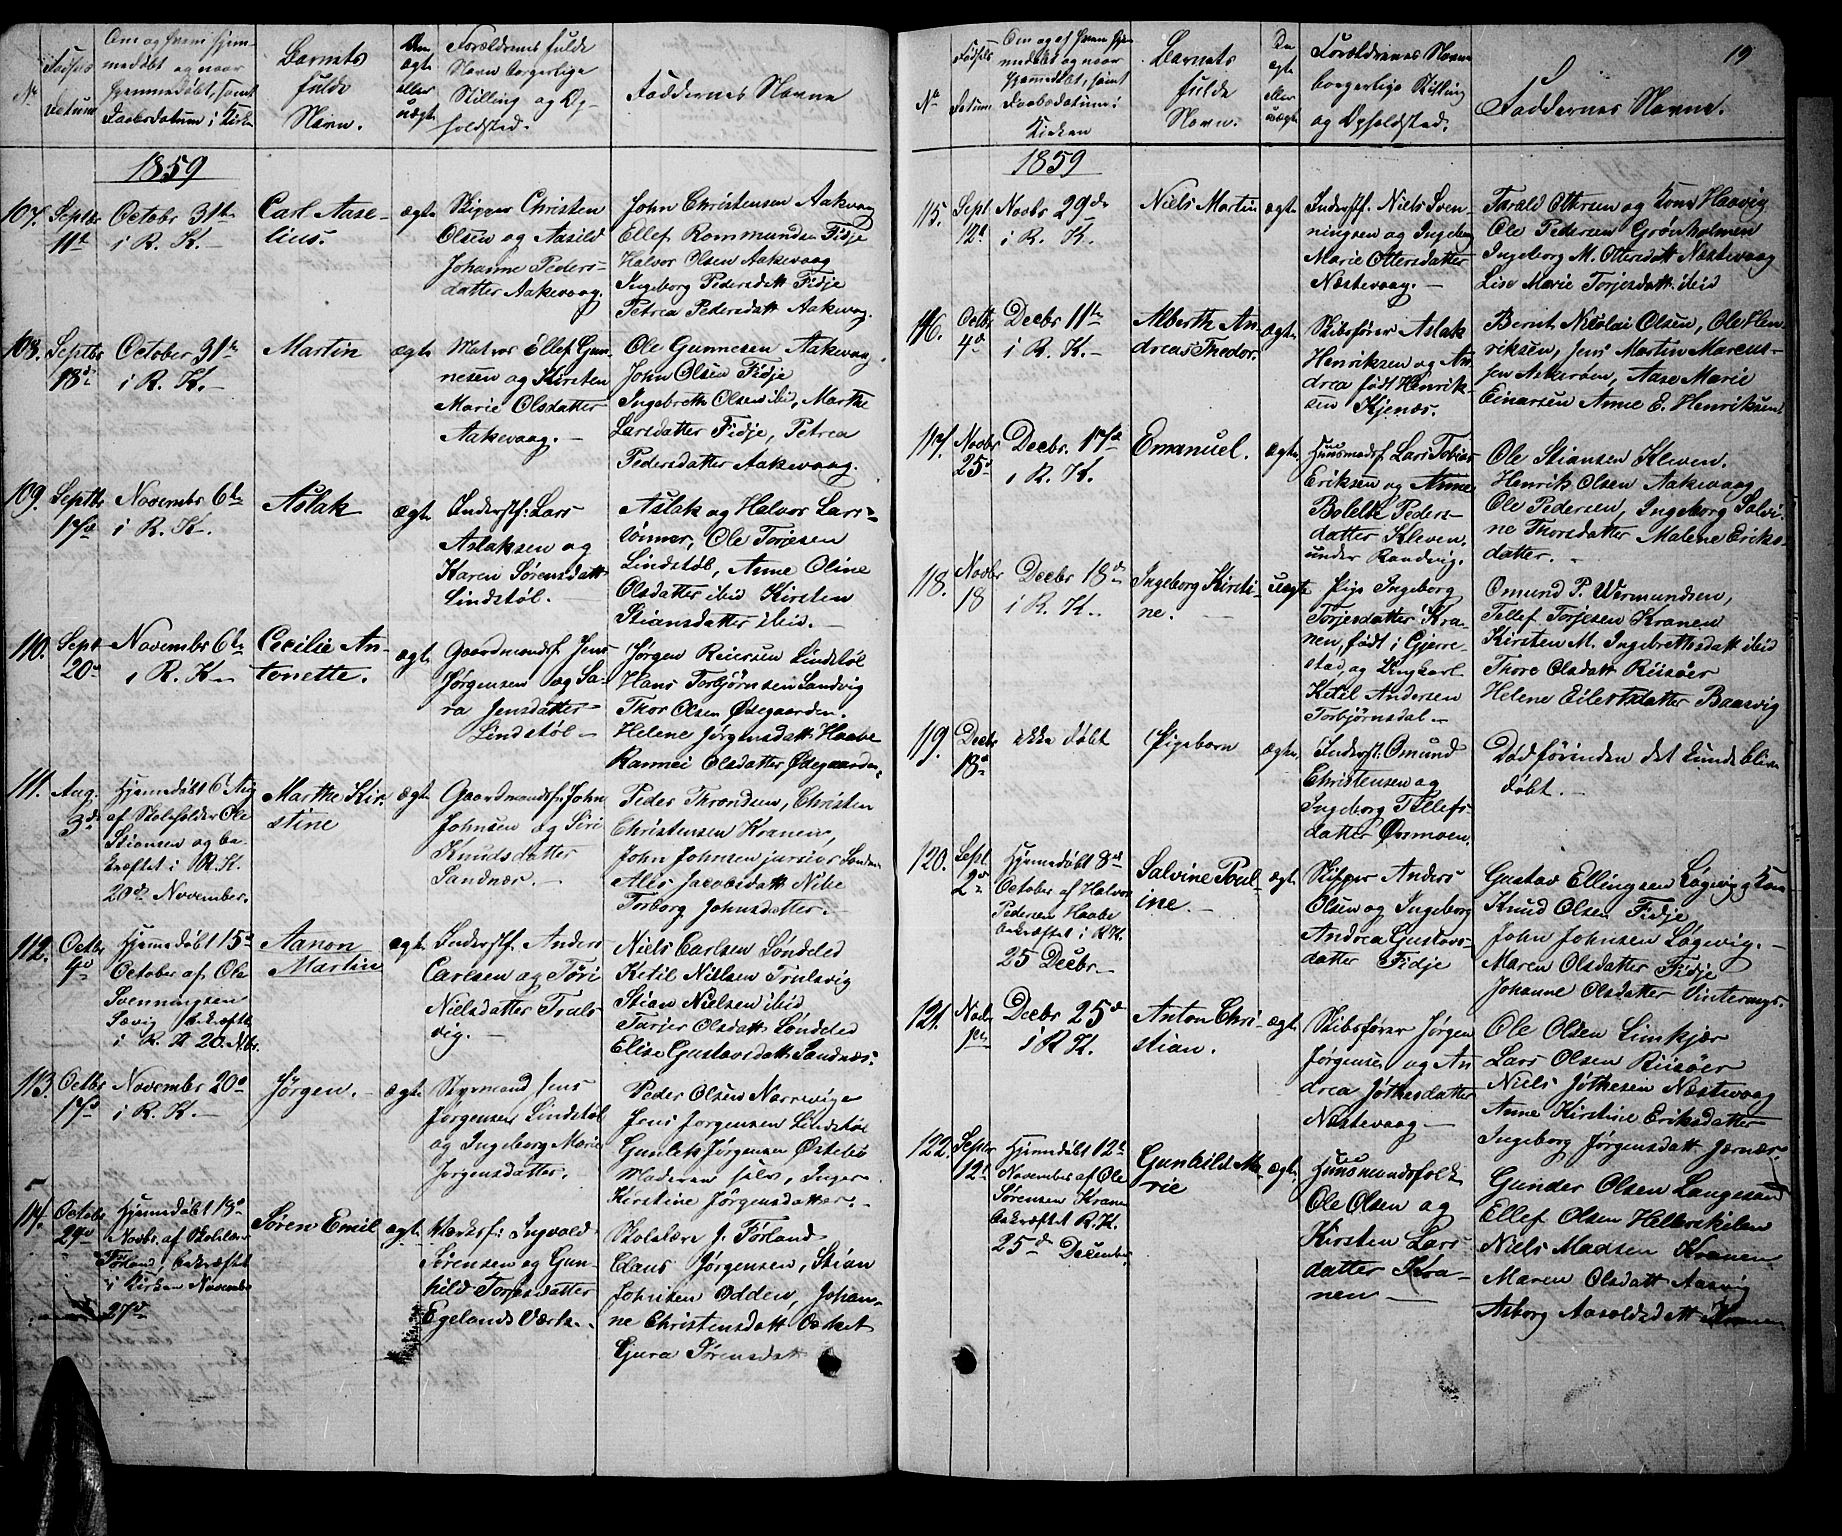 No
Fødsels
Datum
Om og hvem hjem-
medøbt og naar
hjemmedøbt, samt
Daabsdatum i Kirken
Barnets
fulde
Navn.
Om
ægte
eller
uægte
Forældrenes fulde
Navn borgerlige
Stilling og Op-
holdsted.
Faddernes Navne
1859
107.
Septbr
11te
Octobr 31te
i R. K.
Carl Aase-
lius.
ægte
Skipper Christen
Olsen og Aasild
Johanne Peders-
datter Aakevaag.
John Christensen Aakvaag
Ellef Rommundsen Fidje
Halvor Olsen Aakevaag
Ingeborg Pedersdatt Fidje
Petrea Pedersdatt Aakevaag.
108.
Septbr
18de
October 31te
i R. K.
Martin
ægte
Matros Ellef Gun-
nesen og Kirsten
Marie Olsdatter
Aakevaag.
Ole Gunnesen Aakevaag.
John Olsen Fidje
Ingebreth Olsen ibid, Marthe
Larsdatter Fidje, Petrea
Pedersdatter Aakevaag.
109.
Septbr
17de
Novembr 6te
i R. K.
Aslak
ægte
Inderstf: Lars
Aslaksen og
Karen Sørensdatt
Lindstøl.
Aslak og Halvor Lars-
sønner, Ole Torjesen
Lindstøl, Anne Oline
Olsdatter ibid Kirsten
Stiansdatter ibid.
110.
Sept
20de
Novembr 6te
i R. K.
Cecilie An-
tonette.
ægte
Gaardmandsf. Jens
Jørgensen og Sa-
ra Jensdatter
Lindstøl
Jørgen Reiersen Lindstøl
Hans Torbjørnsen Sandvig
Thor Olsen Ødegaarden.
Helene Jørgensdatt. Haabe
Rannei Olsdatter Ødegaarden.
111.
Aug.
3de
Hjemmedøbt 6 Aug
af Skoleholder Ole
Stiansen og be-
kræftet i R. K.
20de November.
Marthe Kir-
stine
ægte
Gaardmandsf. John
Johnsen og Siri
Knudsdatter
Sandnær.
Peder Throndsen, Christen
Christensen Kranen,
John Johnsen junior Sandnær
Ales Jacobsdatt Nibe
Torborg Johnsdatter.
112.
Octbr
4de
Hjemmedøbt 15de
October af Ole
Svenningsen
Sævig bekræftet
i R. K. 20. Nbr.
Aanon
Martin
ægte
Inderstf. Anders
Carlsen og Tøri
Nielsdatter Truls-
vig.
Niels Carlsen Søndeled
Ketil Nielsen Trulsvig
Stian Nielsen ibid
Tarjer Olsdatt Søndeled
Elise Gustavsdatt Sandnæs.
113.
Octbr
17de
Novembr 20de
i R. K.
Jørgen.
ægte
Styrmand Jens
Jørgensen Lindstøl
og Ingeborg Marie
Jørgensdatter.
Peder Olsen Narrevige
Jens Jørgensen Lindstøl
Gunlek Jørgensen Østebø
Moderen selv, Inger
Kirstine Jørgensdatter.
114.
Octobr
29de
Hjemmedøbt 19de
Novbr. af Skolelær.
Førland, bekræftet
i Kirken November
27de
Søren Emil
ægte
Værksf: Ingvald
Sørensen og Gun-
hild Torjesdatter
Egelands Værk.
Skolelære J. Førland
Claus Jørgensen, Stian
Johnsen Odden, Johan-
ne Christensdatt Værket
Gjura Sørensdatt
19
No
Fødsels
Datum
Om og af hvem hjem-
medøbt og naar
hjemmedøbt, samt
Daabsdatum i
Kirken
Barnets
fulde
Navn.
Om
ægte
eller
uægte
Forældrenes Navne
borgerlige Stilling
og Opholdsted.
Faddernes Navne.
1859
115.
Sept
12te
Novbr 29de
i R. K.
Niels Martin
ægte
Inderstf. Niels Sven-
ningsen og Ingeborg
Marie Ottersdatter
Næstevaag.
Tarald Ottersen og Kone Haavig
Ole Pedersen Grønholmen
Ingeborg M. Ottersdatt Næstevaag
Lise Marie Torjesdatt. ibid
116.
Octbr
4de
Decbr 11te
i R. K.
Alberth An-
dreas Theodor.
ægte
Skibsfører Aslak
Henriksen og An-
drea født Henrik-
sen Kjenæs.
Bernt Nicolai Olsen, Ole Hen-
riksen, Jens Martin Marcus-
sen Askerøen, Aase Marie
Einarsen Anne E. Henriksen
117.
Novbr
25de
Decbr. 17de
i R. K.
Emanuel.
ægte
Huusmandsf. Lars Tobias
Eriksen og Anne
Bolette Peders-
datter Kleven,
under Randvig.
Ole Stiansen Kleven.
Henrik Olsen Aakevaag
Ole Pedersen, Ingeborg Salvi-
ne Thorsdatter Malene Eriks-
datter.
118.
Novbr
18
Decbr 18de
i R. K.
Ingeborg Kirsti-
ne.
uægte
Pige Ingeborg
Torjesdatter Kra-
nen, født i Gjerre-
stad, og Ungkarl
Ketil Andersen
Torbjørnsdal.
Omund P. Wermundsen,
Tellef Torjesen Kranen
Kirsten M. Ingebrethsdatt ibid
Thore Olsdatt Riisøer
Helene Eilertsdatter Baasvig
119.
Decbr
18de
ikke døbt
Pigebarn
ægte
Inderstf. Omund
Christensen og
Ingeborg Tellefs-
datter Ørsmoen.
Død førinden det kunde blive
døbt.
120.
Sept
2de
Hjemmedøbt 8de
October af Halvor
Pedersen Haabe
bekræftet i R. K.
25 Decbr.
Salvine Paul-
ine.
ægte
Skipper Anders
Olsen og Ingeborg
Andrea Gustavs-
datter Fidje
Gustav Ellingsen Løgevig og Kone
Knud Olsen Fidje
John Johnsen Løgevig.
Maren Olsdatter Fidje
Johanne Olsdatter Vinterungs.
121.
Novbr
Decbr 25de
i R. K.
Anton Chri-
stian.
ægte
Skibsfører Jørgen
Jørgensen og An-
drea Jøthesdatter
Næstevaag
Ole Olsen Limkjær
Lars Olsen Riisøer
Niels Jøthesen Næstevaag
Anne Kirstine Eriksdatter
Ingeborg Jørgensdatt. Jernær.
122.
Septbr
12te
Hjemmedøbt 12te
November af Ole
Sørensen Kranen
bekræftet R. K.
25de December
Gunhild Ma-
rie
ægte
Huusmandsfolk
Ole Olsen og
Kirsten Lars-
datter Kra-
nen
Gunder Olsen Langesand
Ellef Olsen Helleskilen
Niels Madsen Kranen
Maren Olsdatt Aasvig
Asborg Aasoldsdatt Kranen